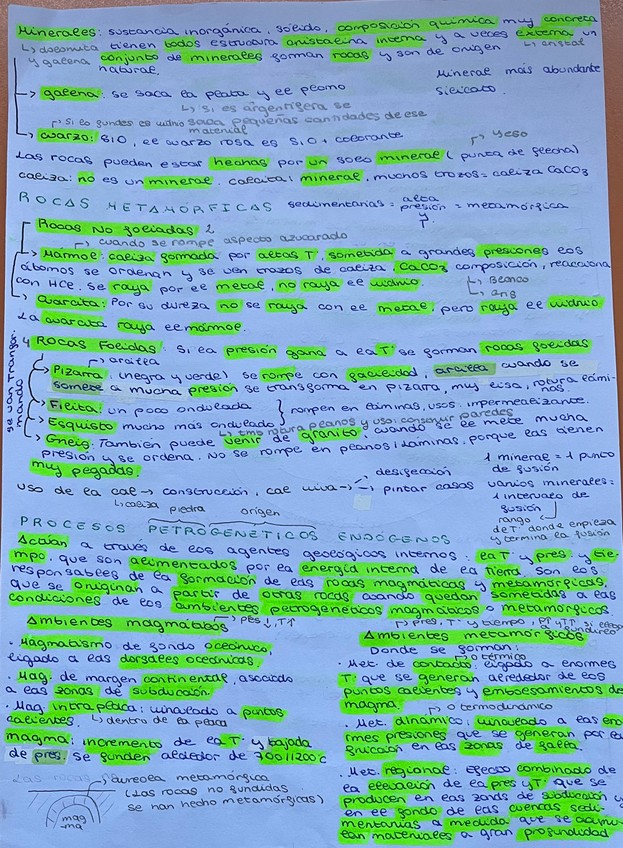 Minerales: sustancia inorgánica, sólido, composición química muy concreta
↳ dolomita y galena tienen todos estructura cristalina interna y a veces externa un
↳ cristal
conjunto de minerales forman rocas y son de origen
natural.
Mineral más abundante
silicato.
→ galena: se saca la plata y el plomo
↳ si es argentífera se
saca pequeñas cantidades de ese
material
↱ si lo fundes es vidrio
↳ cuarzo: SiO, el cuarzo rosa es SiO + colorante
↱ yeso
Las rocas pueden estar hechas por un solo mineral (punta de flecha)
caliza: no es un mineral. calcita: mineral, muchos trozos = caliza CaCO3
ROCAS METAMÓRFICAS sedimentarias = alta presión y T = metamórfica
Rocas No foliadas 2
↱ cuando se rompe aspecto azucarado
→ Mármol: caliza formada por altas T, sometida a grandes presiones los
átomos se ordenan y se ven trozos de caliza, CaCO3 composición, reacciona
con HCl. Se raya por el metal, no raya el vidrio.
↳ Blanco
↳ ang
↳ Cuarcita: Por su dureza no se raya con el metal, pero raya el vidrio
La cuarcita raya el mármol.
4 Rocas Foliadas: si la presión gana a la T se forman rocas foliadas
se van transformando
↱ arcilla
Pizarra: (negra y verde) se rompe con facilidad, arcilla cuando se
somete a mucha presión se transforma en pizarra, muy lisa, rotura láminas.
Filita: un poco ondulada } rompen en láminas, usos impermealizante.
Esquisto mucho más ondulado
↳ tmb rotura planos y uso: construir paredes
Gneis: También puede venir de granito, cuando se le mete mucha
presión y se ordena. No se rompe en planos/láminas, porque las tienen
muy pegadas.
1 mineral = 1 punto
de fusión
varios minerales =
1 intervalo de
fusión
rango
de T: donde empieza
y termina la fusión
uso de la cal → construcción, cal viva → desifección
→ pintar casas
↳ caliza piedra origen
PROCESOS PETROGENÉTICOS ENDÓGENOS
Actúan a través de los agentes geológicos internos: la T y pres. y tie-
mpo, que son alimentados por la energía interna de la tierra son los
responsables de la formación de las rocas magmáticas y metamórficas,
que se originan a partir de otras rocas cuando quedan sometidas a las
condiciones de los ambientes petrogenéticos magmáticos o metamórficos.
↱ pres ↓, T↑
Ambientes magmáticos
· Magmatismo de fondo oceánico,
ligado a las dorsales oceánicas.
· Mag. de margen continental, asociado
a las zonas de subducción.
· Mag. intraplaca: vinculado a puntos
calientes. ↳ dentro de la placa
magma: incremento de la T y bajada
de pres. se funden alrededor de 700/1200 C
aureola metamórfica
(Las rocas no fundidas
se han hecho metamórficas)
mag
-ma
Ambientes metamórficos
Donde se forman:
↱ o térmico
· Met. de contacto: ligado a enormes
T: que se generan alrededor de los
puntos calientes y emboesamientos de
magma. ↱ o termodinamico
· Met. dinámico: vinculado a las enor
mes presiones que se generan por la
fricción en las zonas de falla.
· Met. regional: efecto combinado de
la elevación de la pres y T: que se
producen en las zonas de subducción y
en el fondo de las cuencas sedi-
mentarias a medida que se acumu-
lan materiales a gran profundidad